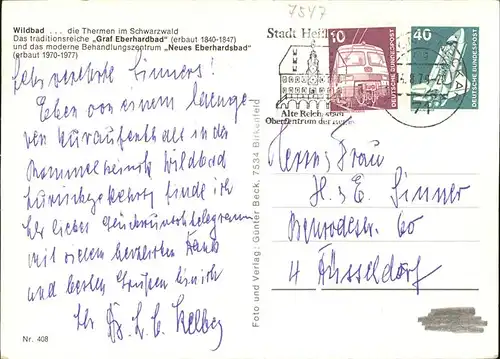 7547
Wildbad ... die Thermen im Schwarzwald
Das traditionsreiche „Graf Eberhardbad“ (erbaut 1840-1847)
und das moderne Behandlungszentrum „Neues Eberhardsbad“
(erbaut 1970-1977)
Sehr verehrte Sinners!
Eben von einem
ren Kuraufenthalt in der
Wildbad
zurückgekehrt finde ich
Ihr liebes Glückwunschtelegramm
mit vielem herzlichen Dank
und besten Grüßen bin ich
Ihr Dr. L. C.
Nr. 408
Foto und Verlag: Günter Beck, 7534 Birkenfeld
Stadt
Alte Reichsstadt
Oberzentrum der
10
DEUTSCHE BUNDESPOST
40
DEUTSCHE BUNDESPOST
71
Herrn Frau
H. & E. Sinner
60
4 Düsseldorf